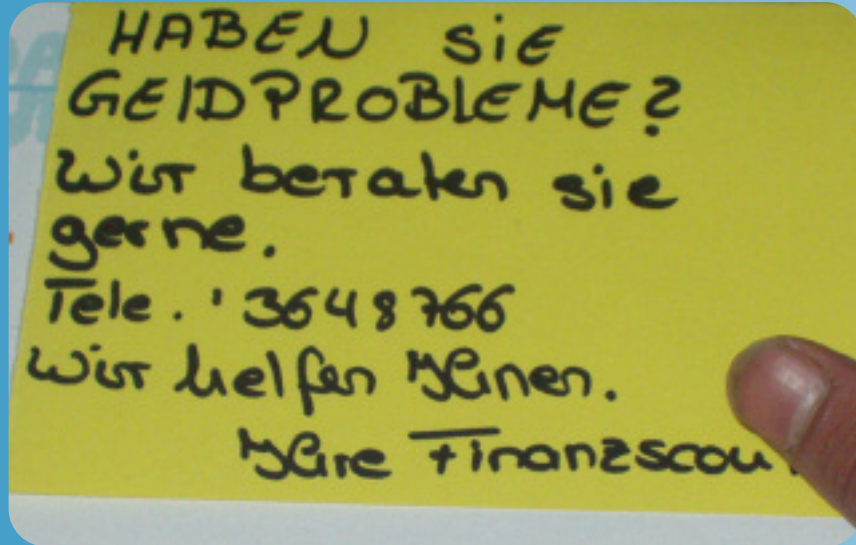 HABEN SiE
GElDPROBlEME?
Wir beraten sie
gerne.
Tele.: 3648766
Wir helfen Ihnen.
Ihre Finanzscou